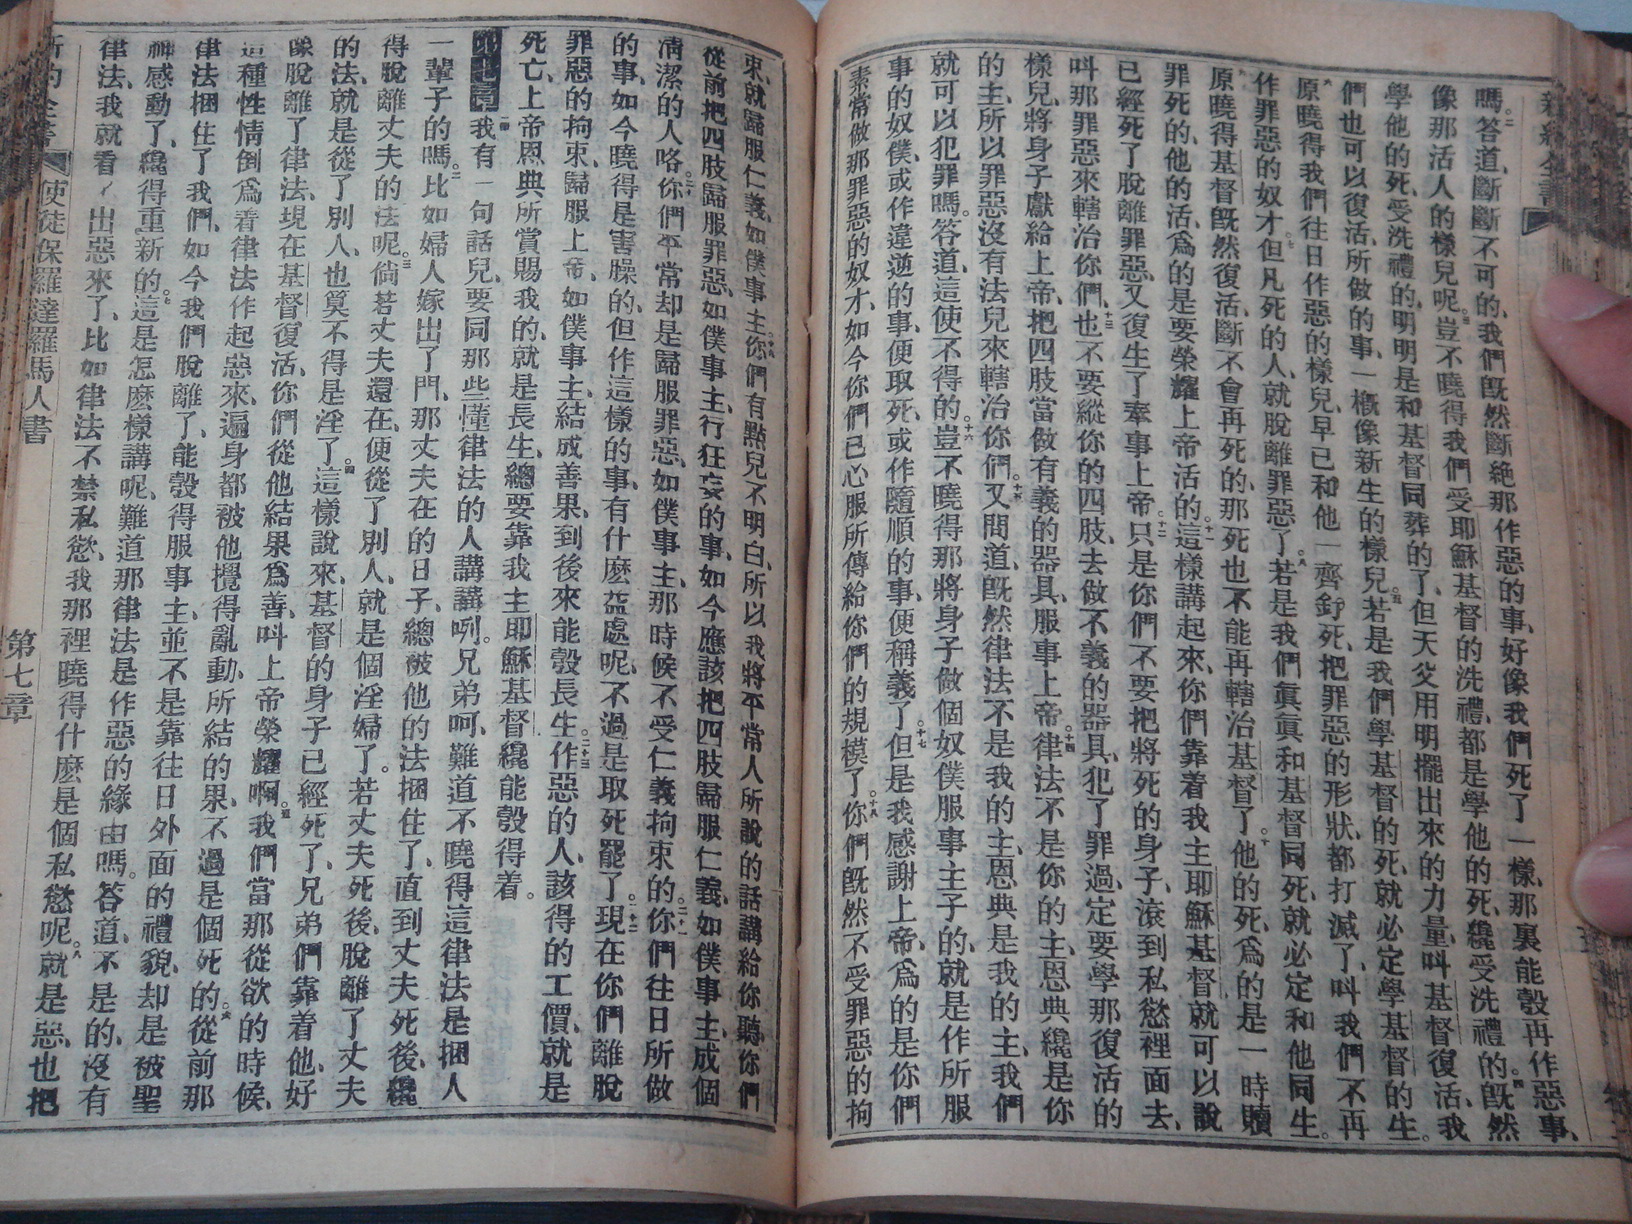 新約全書
嗎。二答道、斷斷不可的、我們旣然斷絕那作惡的事、好像我們死了一樣、那裏能彀再作惡事、
像那活人的樣兒呢。三豈不曉得我們受耶穌基督的洗禮、都是學他的死、纔受洗禮的。四旣然
學他的死、受洗禮的、明明是和基督同葬的了、但天父用明擺出來的力量、叫基督復活、我
們也可以復活、所做的事、一概像新生的樣兒。五若是我們學基督的死、就必定學基督的生。
六原曉得我們往日作惡的樣兒、早已和他一齊釘死、把罪惡的形狀、都打滅了、叫我們不再
作罪惡的奴才。七但凡死的人、就脫離罪惡了。八若是我們眞眞和基督同死、就必定和他同生。
九原曉得基督旣然復活、斷不會再死的、那死也不能再轄治基督了。十他的死、爲的是一時贖
罪死的、他的活、爲的是要榮耀上帝活的。十一這樣講起來、你們靠着我主耶穌基督、就可以說
已經死了脫離罪惡、又復生了奉事上帝。十二只是你們不要把將死的身子、滾到私慾裡面去、
叫那罪惡來轄治你們。十三也不要縱你的四肢、去做不義的器具、犯了罪過、定要學那復活的
樣兒、將身子獻給上帝、把四肢當做有義的器具、服事上帝。十四律法不是你的主、恩典纔是你
的主、所以罪惡沒有法兒來轄治你們。十五又問道、旣然律法不是我的主、恩典是我的主、我們
就可以犯罪嗎。答道、這使不得的。十六豈不曉得那將身子做個奴僕服事主子的、就是作所服
事的奴僕、或作違逆的事、便取死、或作隨順的事、便稱義了。十七但是我感謝上帝、爲的是你們
素常做那罪惡的奴才、如今你們已心服所傳給你們的規模了。十八你們旣然不受罪惡的拘
束、就歸服仁義、如僕事主。十九你們有點兒不明白、所以我將平常人所說的話講給你聽、你們
從前把四肢歸服罪惡、如僕事主、行狂妄的事、如今應該把四肢歸服仁義、如僕事主、成個
淸潔的人咯。二十你們平常却是歸服罪惡、如僕事主、那時候不受仁義拘束的。二十一你們往日所做
的事、如今曉得是害臊的、但作這樣的事、有什麽益處呢、不過是取死罷了。二十二現在你們離脫
罪惡的拘束、歸服上帝、如僕事主、結成善果、到後來能彀長生。二十三作惡的人、該得的工價、就是
死亡、上帝恩典所賞賜我的、就是長生、總要靠我主耶穌基督、纔能彀得着。
第七章 一我有一句話兒、要同那些懂律法的人講講咧。兄弟呵、難道不曉得這律法是捆人
一輩子的嗎。二比如婦人嫁出了門、那丈夫在的日子、總被他的法捆住了、直到丈夫死後、纔
得脫離丈夫的法呢。三倘若丈夫還在、便從了別人、就是個淫婦了。若丈夫死後、脫離了丈夫
的法、就是從了別人、也算不得是淫了。四這樣說來、基督的身子已經死了、兄弟們靠着他、好
像脫離了律法、現在基督復活、你們從他結果爲善、叫上帝榮耀啊。五我們當那從欲的時候、
這種性情倒爲着律法作起惡來、遍身都被他攪得亂動、所結的果、不過是個死的。六從前那
律法捆住了我們、如今我們脫離了、能彀得服事主、並不是靠往日外面的禮貌、却是被聖
神感動了、纔得重新的。七這是怎麽樣講呢、難道那律法是作惡的緣由嗎。答道、不是的、沒有
律法、我就看不出惡來了、比如律法不禁私慾、我那裡曉得什麽是個私慾呢。八就是惡、也把
新約全書 使徒保羅達羅馬人書 第七章